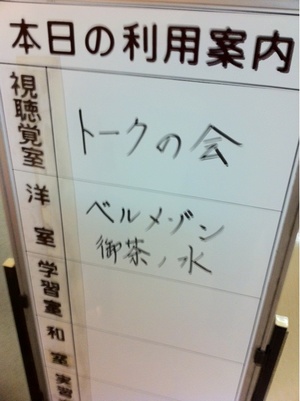 本日の利用案内
視聴覚室
トークの会
洋室
ベルメ・ゾン
御茶ノ水
学習室
和室
実習